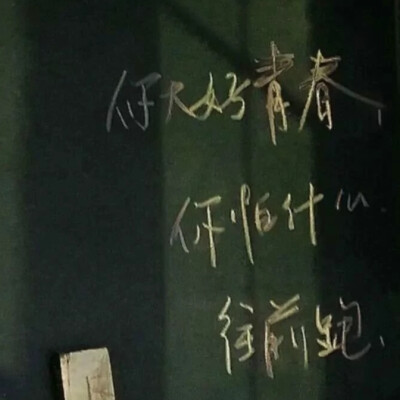 你大好青春,
你怕什么.
往前跑、